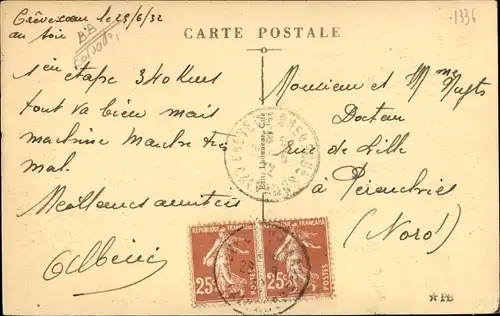 Crèvecoeur le 28/6/32
au soir
1336
CARTE POSTALE
1ère étape 340 Kms
tout va bien mais
machine marche très
mal.
Meilleures amitiés
Monsieur et Mme
Docteur
rue de Lille
à Pérenchies
(Nord)
RÉPUBLIQUE FRANÇAISE
25c
POSTES
RÉPUBLIQUE FRANÇAISE
25c
POSTES
PB